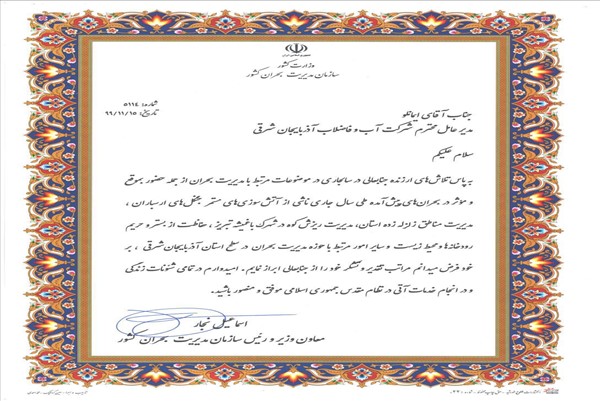 جمهوری اسلامی ایران
وزارت کشور
سازمان مدیریت بحران کشور
شماره: ۵۱۱۴
تاریخ: ۹۹/۱۱/۱۵
جناب آقای ایمانلو
مدیر عامل محترم شرکت آب و فاضلاب آذربایجان شرقی
سلام علیکم
به پاس تلاش های ارزنده جنابعالی در سالجاری در موضوعات مرتبط با مدیریت بحران از جمله حضور بموقع
و مؤثر در بحران های پیش آمده طی سال جاری ناشی از آتش سوزی های مستمر جنگل های ارسباران ،
مدیریت مناطق زلزله زده استان، مدیریت ریزش کوه در شهرک باغمیشه تبریز ، حفاظت از بستر و حریم
رودخانه ها و محیط زیست و سایر امور مرتبط با حوزه مدیریت بحران در سطح استان آذربایجان شرقی ، بر
خود فرض میدانم مراتب تقدیر و تشکر خود را از جنابعالی ابراز نمایم. امیدوارم در تمامی شئونات زندگی
و در انجام خدمات آتی در نظام مقدس جمهوری اسلامی موفق و منصور باشید.
اسماعیل نجار
معاون وزیر و رئیس سازمان مدیریت بحران کشور